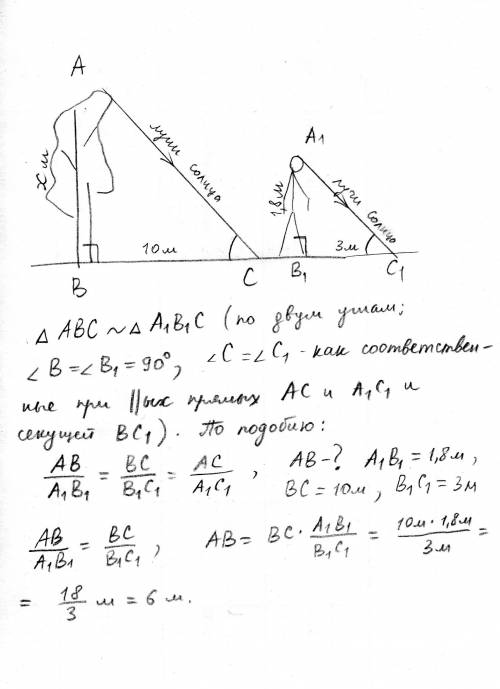 A
A₁
x м
лучи солнца
1,8м
лучи солнца
10м
3м
B
C
B₁
C₁
△ ABC ~ △ A₁B₁C (по двум углам;
∠B = ∠B₁ = 90°, ∠C = ∠C₁ - как соответствен-
ные при ||ых прямых AC и A₁C₁ и
секущей BC₁). По подобию:
AB/A₁B₁ = BC/B₁C₁ = AC/A₁C₁ , AB - ? A₁B₁ = 1,8м ,
BC = 10м , B₁C₁ = 3м
AB/A₁B₁ = BC/B₁C₁ , AB = BC · A₁B₁/B₁C₁ = 10м · 1,8м/3м =
= 18/3 м = 6 м.